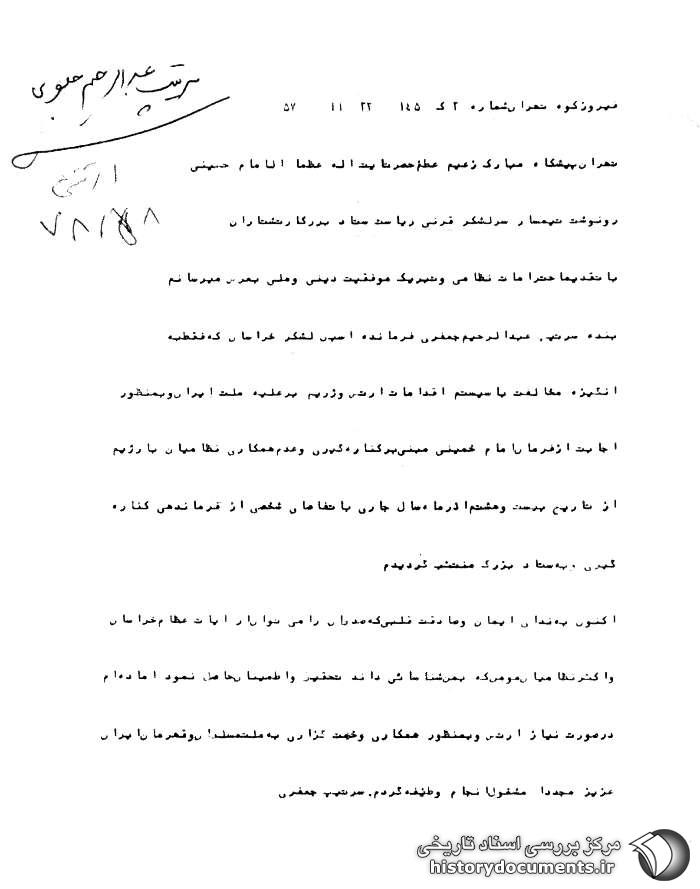 سرتیپ عبدالرحیم جعفری
ارتش
فیروزکوه تهران شماره ۲ ک ۱۴۵ ۲۲ ۱۱ ۵۷
تهران پیشگاه مبارک زعیم عظم حضرت ایت اله عظما اقا امام حسینی
رونوشت تیمسار سرلشکر قرنی ریاست ستاد بزرگ ارتشتاران
با تقدیم احترامات نظامی و تبریک موفقیت دینی و ملی بعرض میرسانم
بنده سرتیپ عبدالرحیم جعفری فرمانده اسبق لشکر خراسان که فقط به
انگیزه مخالفت با سیستم اقدامات ارتش و رژیم بر علیه ملت ایران و بمنظور
اجابت از فرمان امام خمینی مبنی بر کناره گیری و عدم همکاری نظامیان با رژیم
از تاریخ بیست و هشتم اذر ماه سال جاری با تقاضای شخصی از فرماندهی کناره
گیری و به ستاد بزرگ منتسب گردیدم
اکنون به ندای ایمان و صادقت قلبی که صدق ان را می توان از ایات عظام خراسان
و اکثر نظامیان مومن که بمن شناسائی دارند تحقیق و اطمینان حاصل نمود اماده ام
در صورت نیاز ارتش و بمنظور همکاری و خدمت گزاری به ملت مسلمان و قهرمان ایران
عزیز مجددا مشغول انجام وظیفه گردم. سرتیپ جعفری
مرکز بررسی اسناد تاریخی
historydocuments.ir